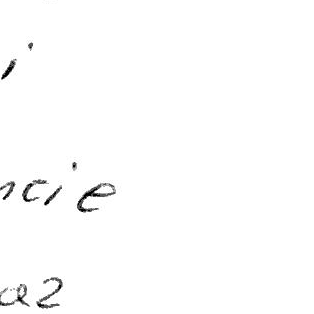 i
ncie
az